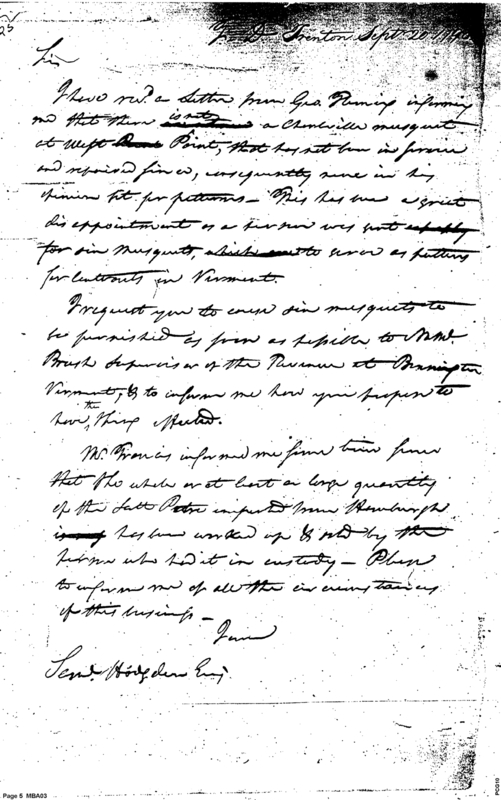 25
T. D. Trenton Sept. 20 179
Sir
I have recd. a Letter from Geo. Fleming informing
me that there is not a Charlville musquet
at West Point, that has not been in service
and repaired since, consequently none in his
opinion fit for patterns – This has been a great
disappointment as a person was sent
for six Musquets, to serve as patterns
for contracts in Vermont.
I request you to cause six musquets to
be furnished as soon as possible to Nathl.
Brush Supervisor of the Revenue at Bennington
Vermont, & to inform me how you propose to
have the thing effected.
Mr. Francis informed me some time since
that the whole or at least a large quantity
of the Salt Petre imported from Hamburgh
has been worked up & sold by the
person who had it in custody – Please
to inform me of all the circumstances
of this business –
I am
Saml. Hodgdon Esq.
Page 5 MBA03